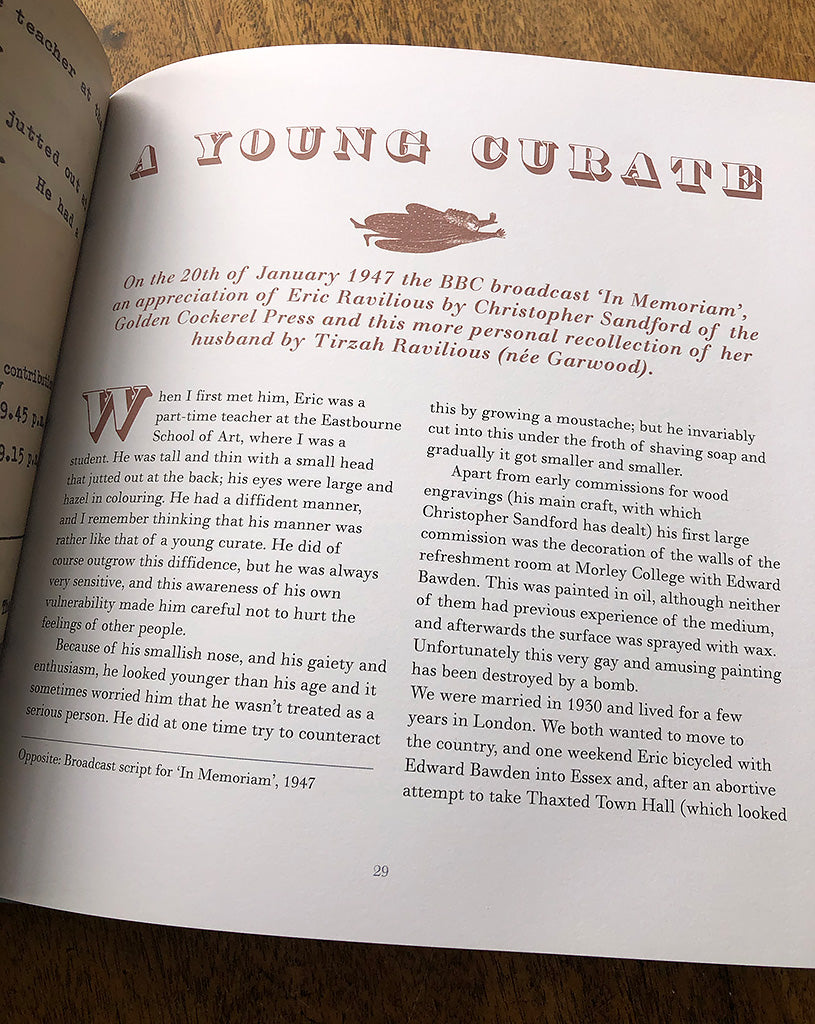 teacher at the
jutted out
He had a
contributi
9.45 p.
9.15 p.
A YOUNG CURATE
On the 20th of January 1947 the BBC broadcast ‘In Memoriam’,
an appreciation of Eric Ravilious by Christopher Sandford of the
Golden Cockerel Press and this more personal recollection of her
husband by Tirzah Ravilious (née Garwood).
When I first met him, Eric was a
part-time teacher at the Eastbourne
School of Art, where I was a
student. He was tall and thin with a small head
that jutted out at the back; his eyes were large and
hazel in colouring. He had a diffident manner,
and I remember thinking that his manner was
rather like that of a young curate. He did of
course outgrow this diffidence, but he was always
very sensitive, and this awareness of his own
vulnerability made him careful not to hurt the
feelings of other people.
Because of his smallish nose, and his gaiety and
enthusiasm, he looked younger than his age and it
sometimes worried him that he wasn’t treated as a
serious person. He did at one time try to counteract
Opposite: Broadcast script for ‘In Memoriam’, 1947
this by growing a moustache; but he invariably
cut into this under the froth of shaving soap and
gradually it got smaller and smaller.
Apart from early commissions for wood
engravings (his main craft, with which
Christopher Sandford has dealt) his first large
commission was the decoration of the walls of the
refreshment room at Morley College with Edward
Bawden. This was painted in oil, although neither
of them had previous experience of the medium,
and afterwards the surface was sprayed with wax.
Unfortunately this very gay and amusing painting
has been destroyed by a bomb.
We were married in 1930 and lived for a few
years in London. We both wanted to move to
the country, and one weekend Eric bicycled with
Edward Bawden into Essex and, after an abortive
attempt to take Thaxted Town Hall (which looked
29